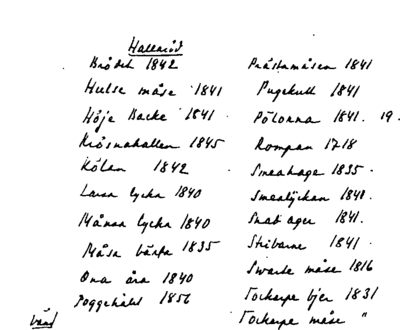 Hallaröd
Brödet 1842
Hulse måse 1841
Höje Backe 1841
Krösnahallen 1845
Kölan 1842
Lassa lycka 1840
Månsa lycka 1840
Måsa 1835
Ona åra 1840
Poggehålet 1856
Prästamåsen 1841
Pugekull 1841
Pölorna 1841. 19.
Rompan 1718
Smeahage 1835.
Smealyckan 1841.
Snab ager 1841.
Stibarne 1841.
Swarte måse 1816
Tockarpe bjer 1831
Tockarpe måse "